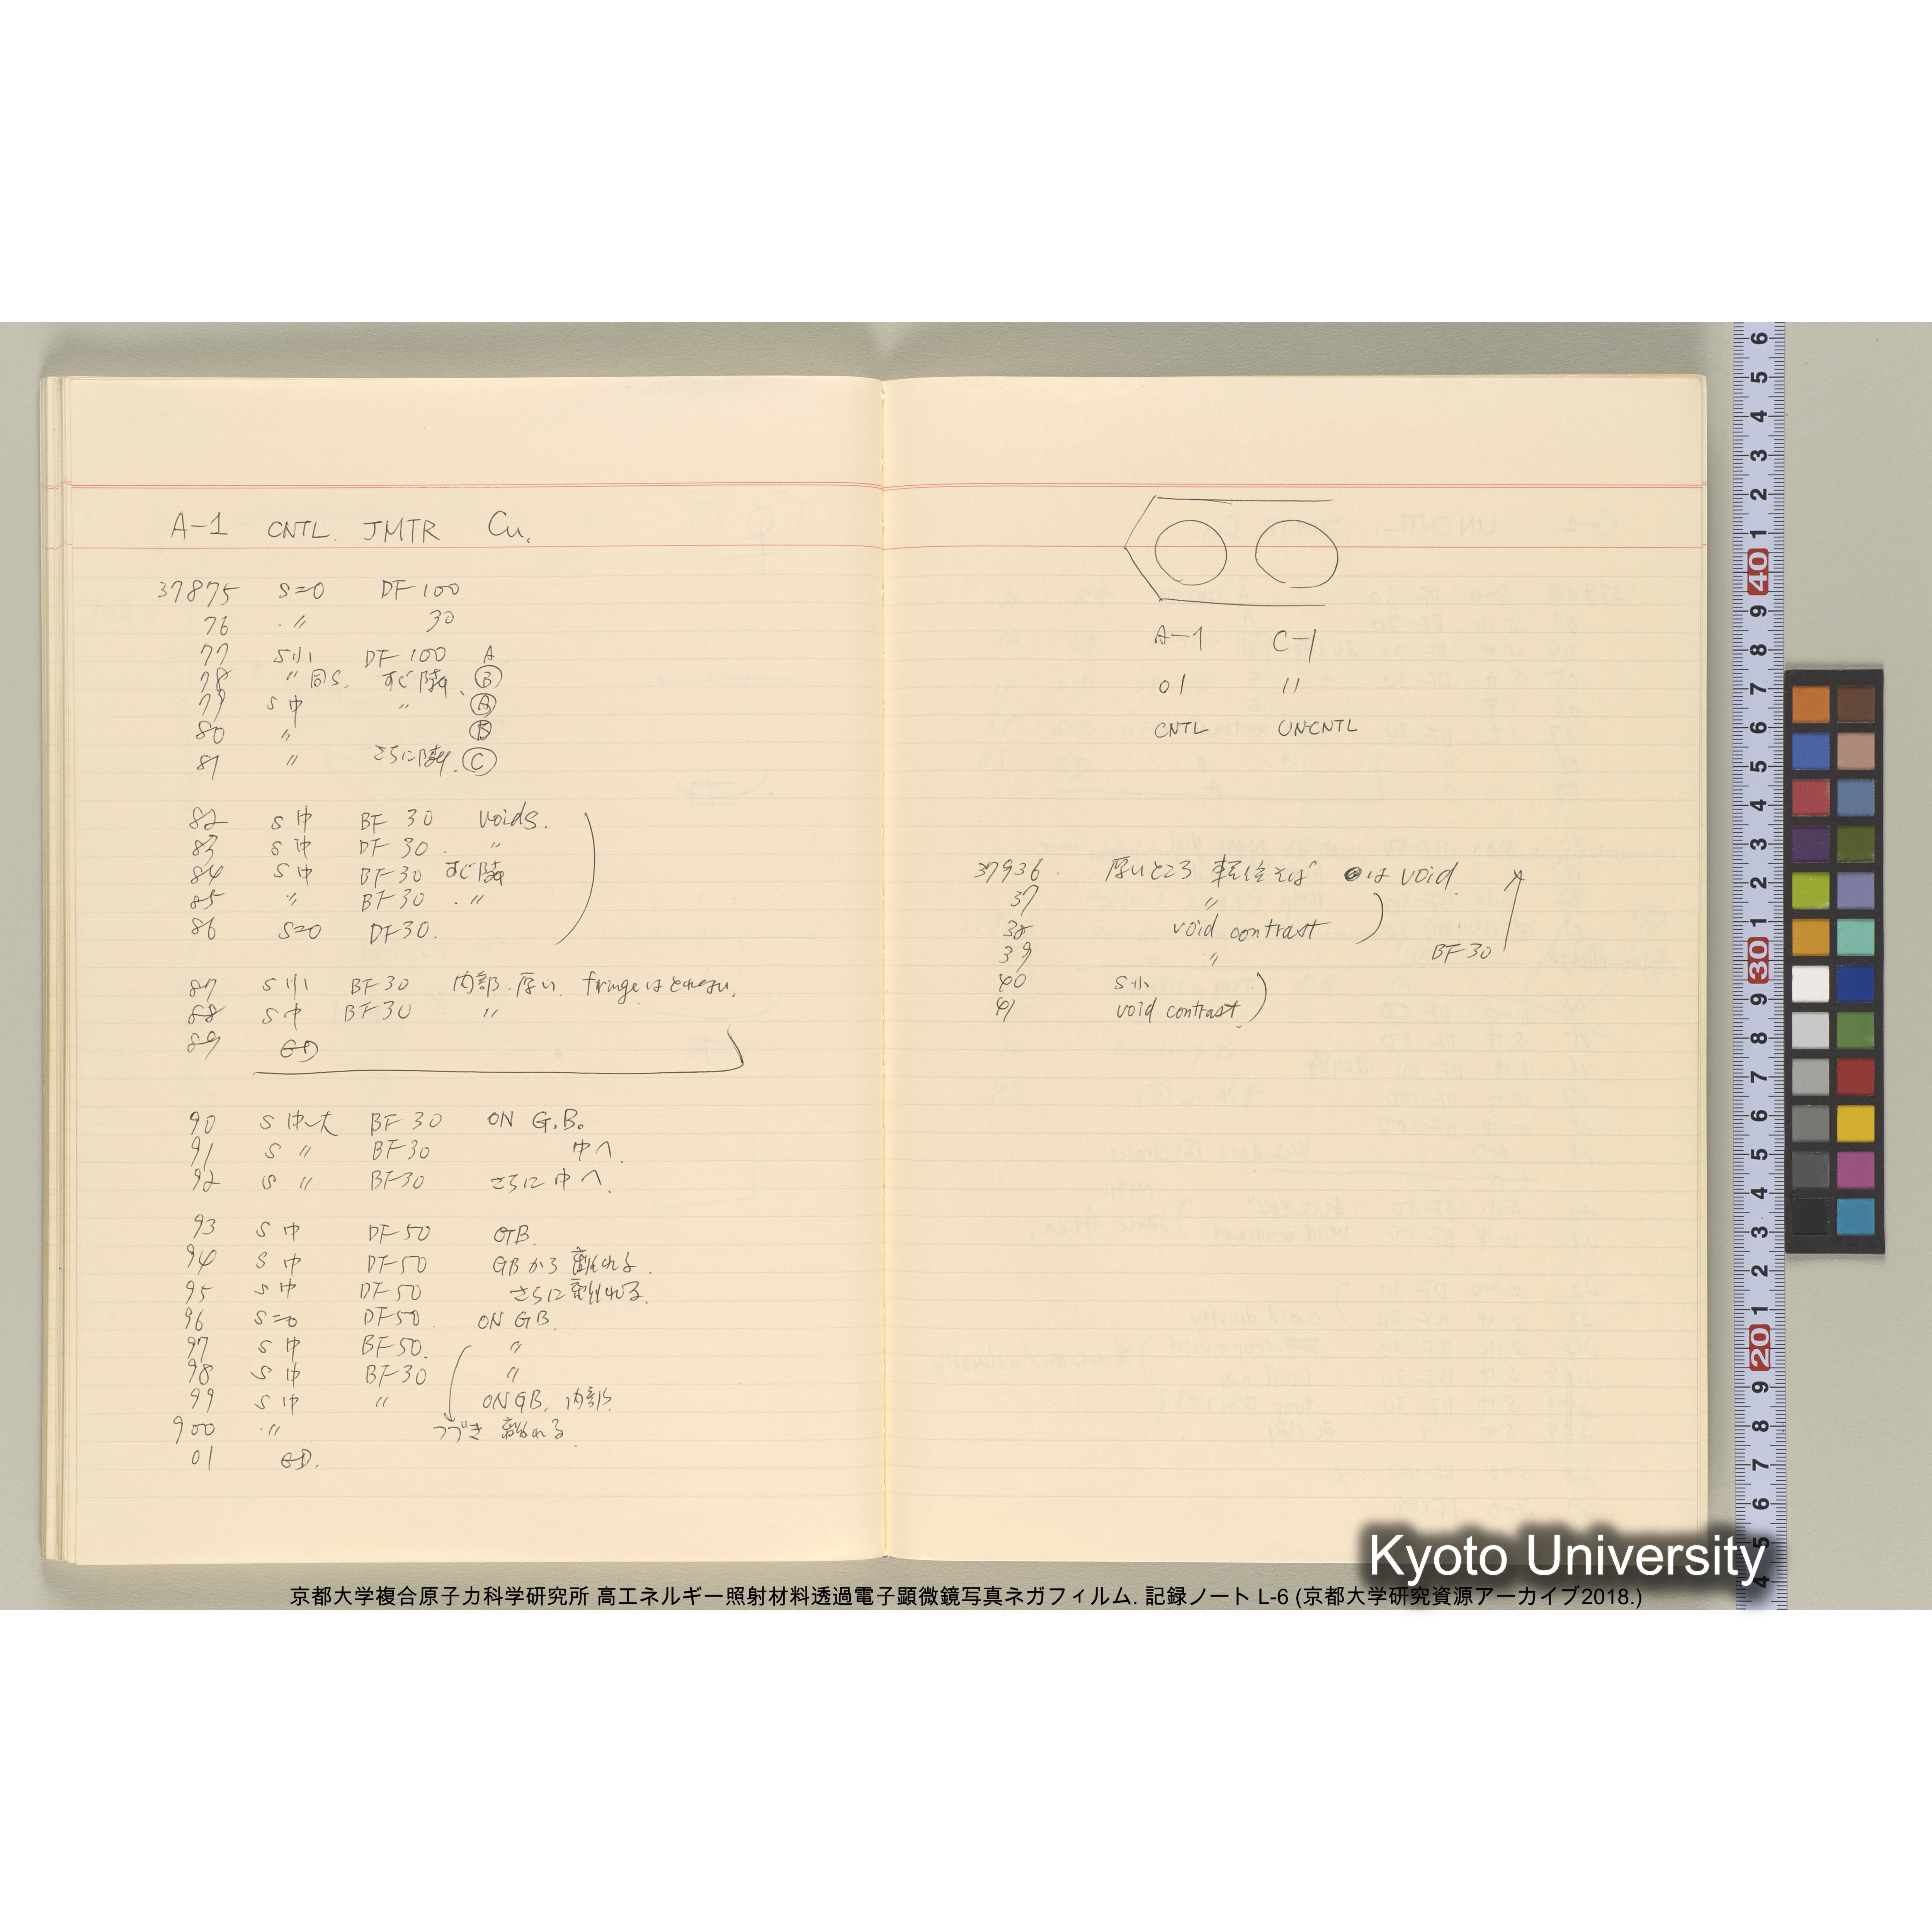 A-1 CNTL. JMTR Cu.
37875 S=0 DF 100
76 〃 30
77 S小 DF 100 A
78 〃 同S. すぐ隣. Ⓑ
79 S中 〃 Ⓐ
80 〃 Ⓑ
81 〃 さらに隣. Ⓒ
82 S中 BF 30 voids.
83 S中 DF 30. 〃
84 S中 BF 30 すぐ隣
85 〃 BF 30. 〃
86 S=0 DF 30.
87 S小 BF 30 内部.厚い. fringeはとれない.
88 S中 BF 30 〃
89 ED
90 S中~大 BF 30 ON G.B.
91 S 〃 BF 30 中へ.
92 S 〃 BF 30 さらに中へ.
93 S中 DF 50 GB.
94 S中 DF 50 GBから離れる.
95 S中 DF 50 さらに離れる.
96 S=0 DF 50 ON GB.
97 S中 BF 50. 〃
98 S中 BF 30 〃
99 S中 〃 ON GB. 内部.
900 〃 つづき 離れる
01 ED.
A-1 C-1
01 〃
CNTL UNCNTL
37936. 厚いところ 転位そば ●は void.
37 〃
38 void contrast
39 〃 BF 30
40 S小
41 void contrast.
Kyoto University
京都大学複合原子力科学研究所 高エネルギー照射材料透過電子顕微鏡写真ネガフィルム. 記録ノート L-6 (京都大学研究資源アーカイブ2018.)
6 5 4 3 2 1 40 9 8 7 6 5 4 3 2 1 30 9 8 7 6 5 4 3 2 1 20 9 8 7 6 5 4